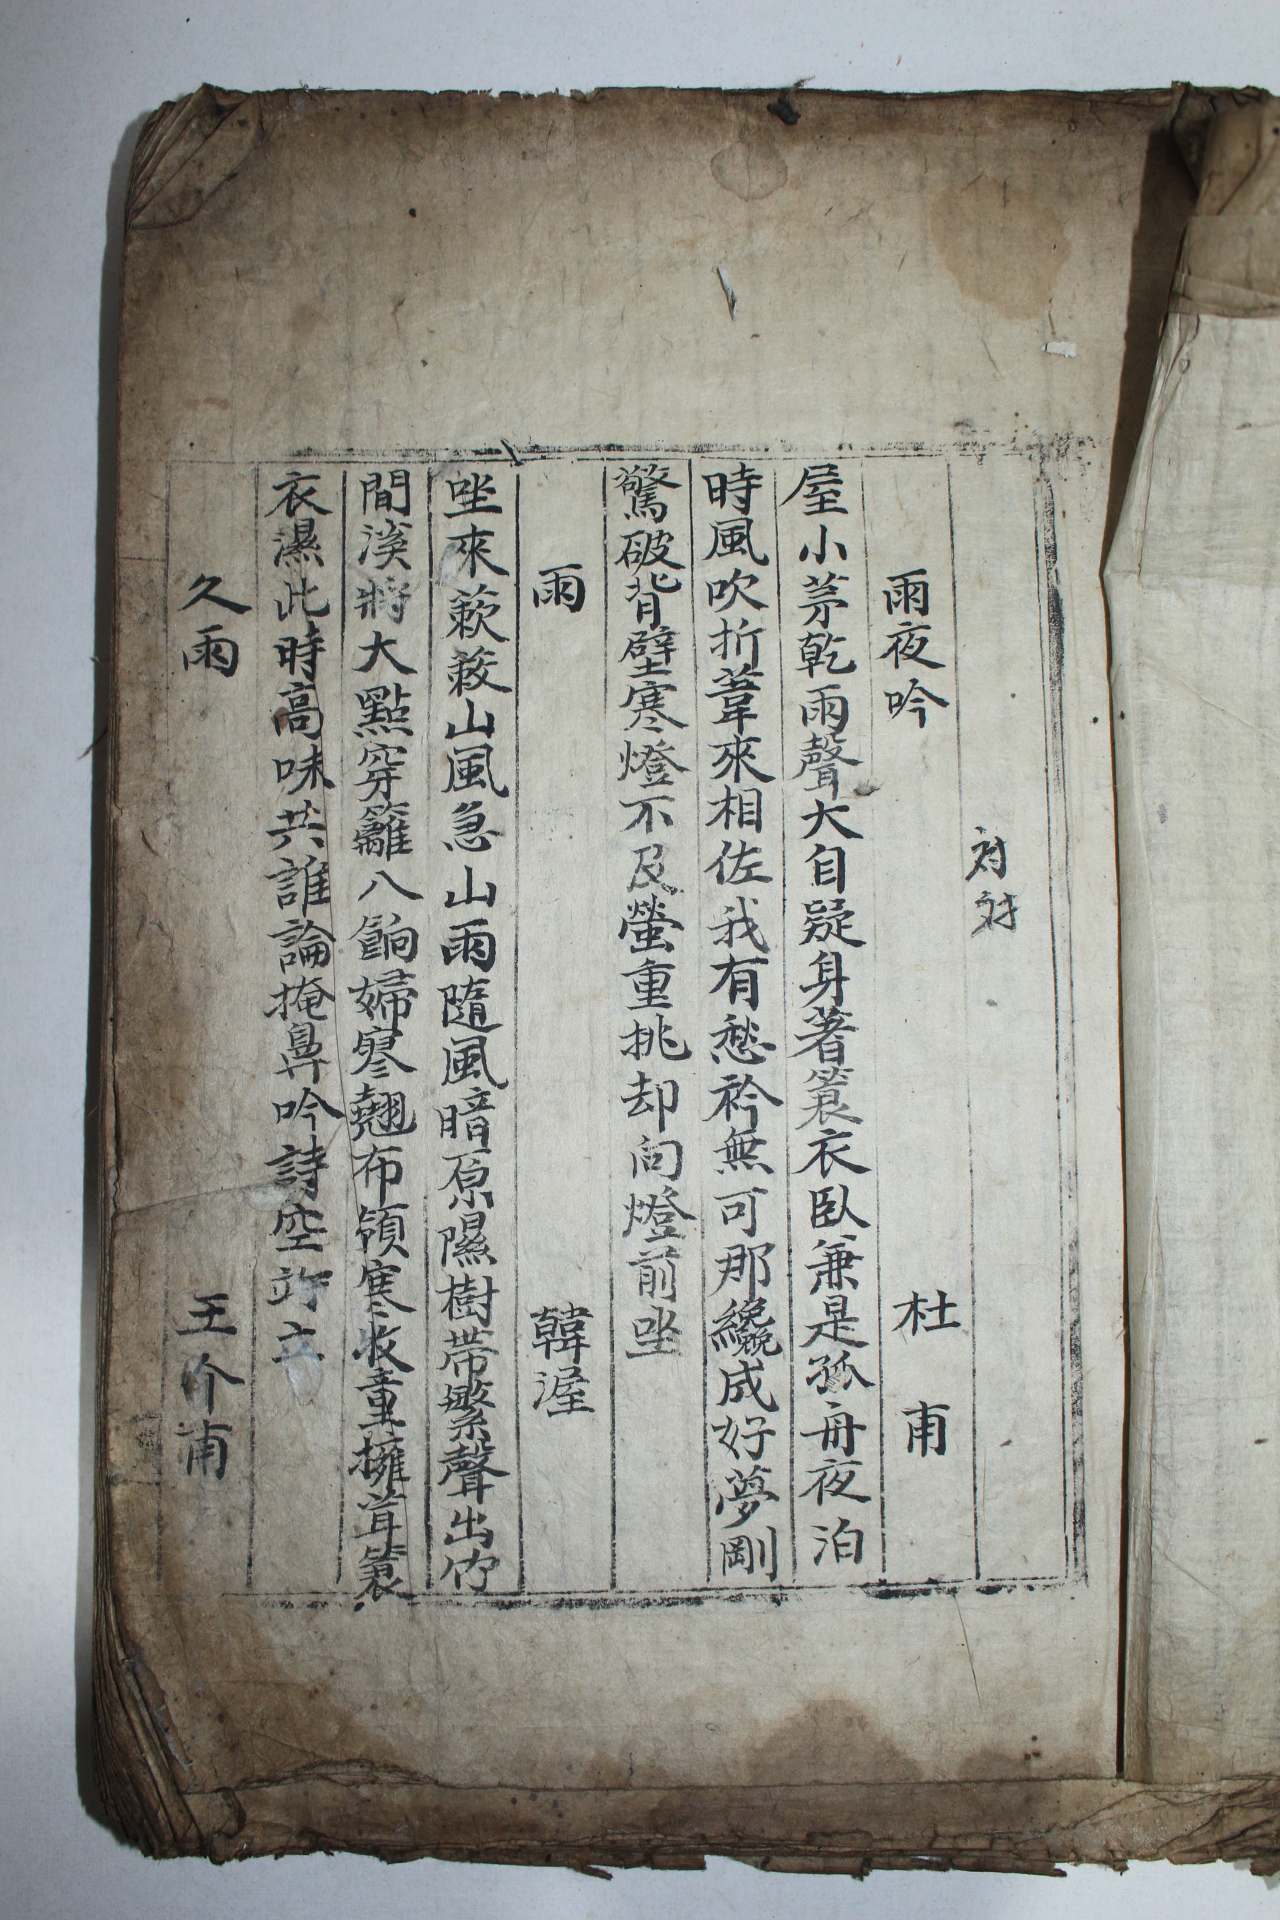 対対
雨夜吟 杜甫
屋小茅乾雨聲大自疑身著簑衣臥兼是孤舟夜泊
時風吹折葦來相佐我有愁衿無可那纔成好夢剛
驚破背壁寒燈不及螢重挑却向燈前坐
雨 韓渥
坐來蔌蔌山風急山雨隨風暗原隰樹帶繁聲出竹
間溪將大點穿籬入餉婦寥翹布領寒牧童擁耳簑
衣濕此時高味共誰論掩鼻吟詩空竚立
久雨 王介甫